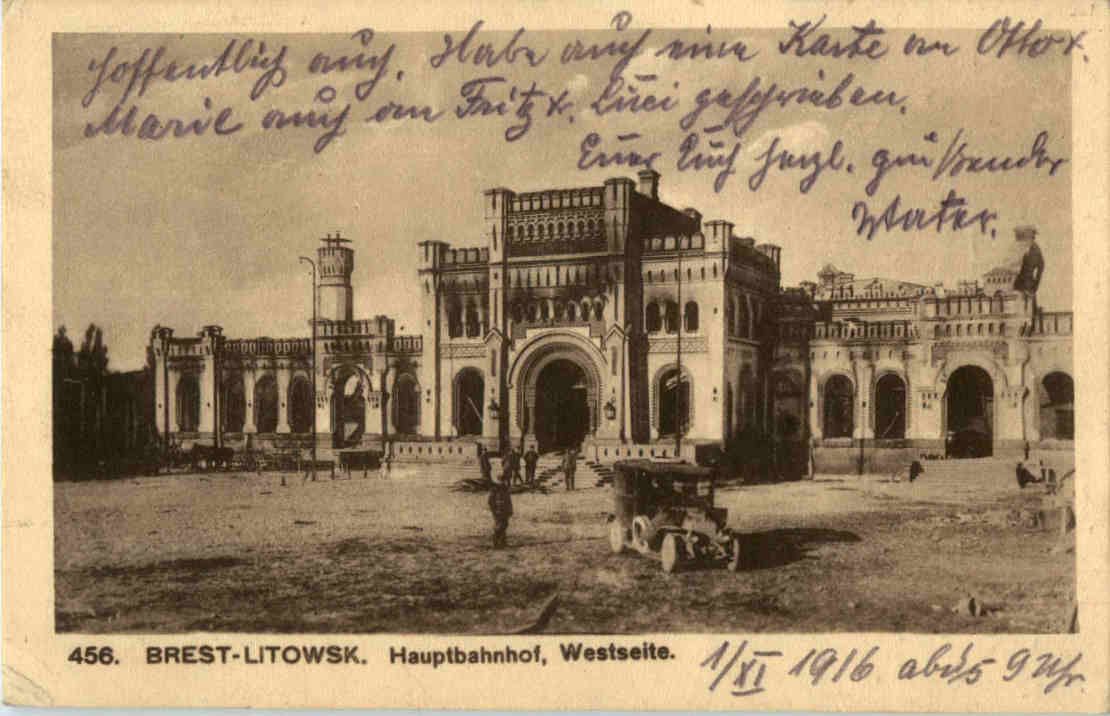 hoffentlich auch. Habe auch eine Karte an Otto x.
Marie auch an Fritz x. Luci geschrieben.
Euer Euch herzl. grüßender
Vater.
456. BREST-LITOWSK. Hauptbahnhof, Westseite.
1/XI 1916 abds 9 Uhr.